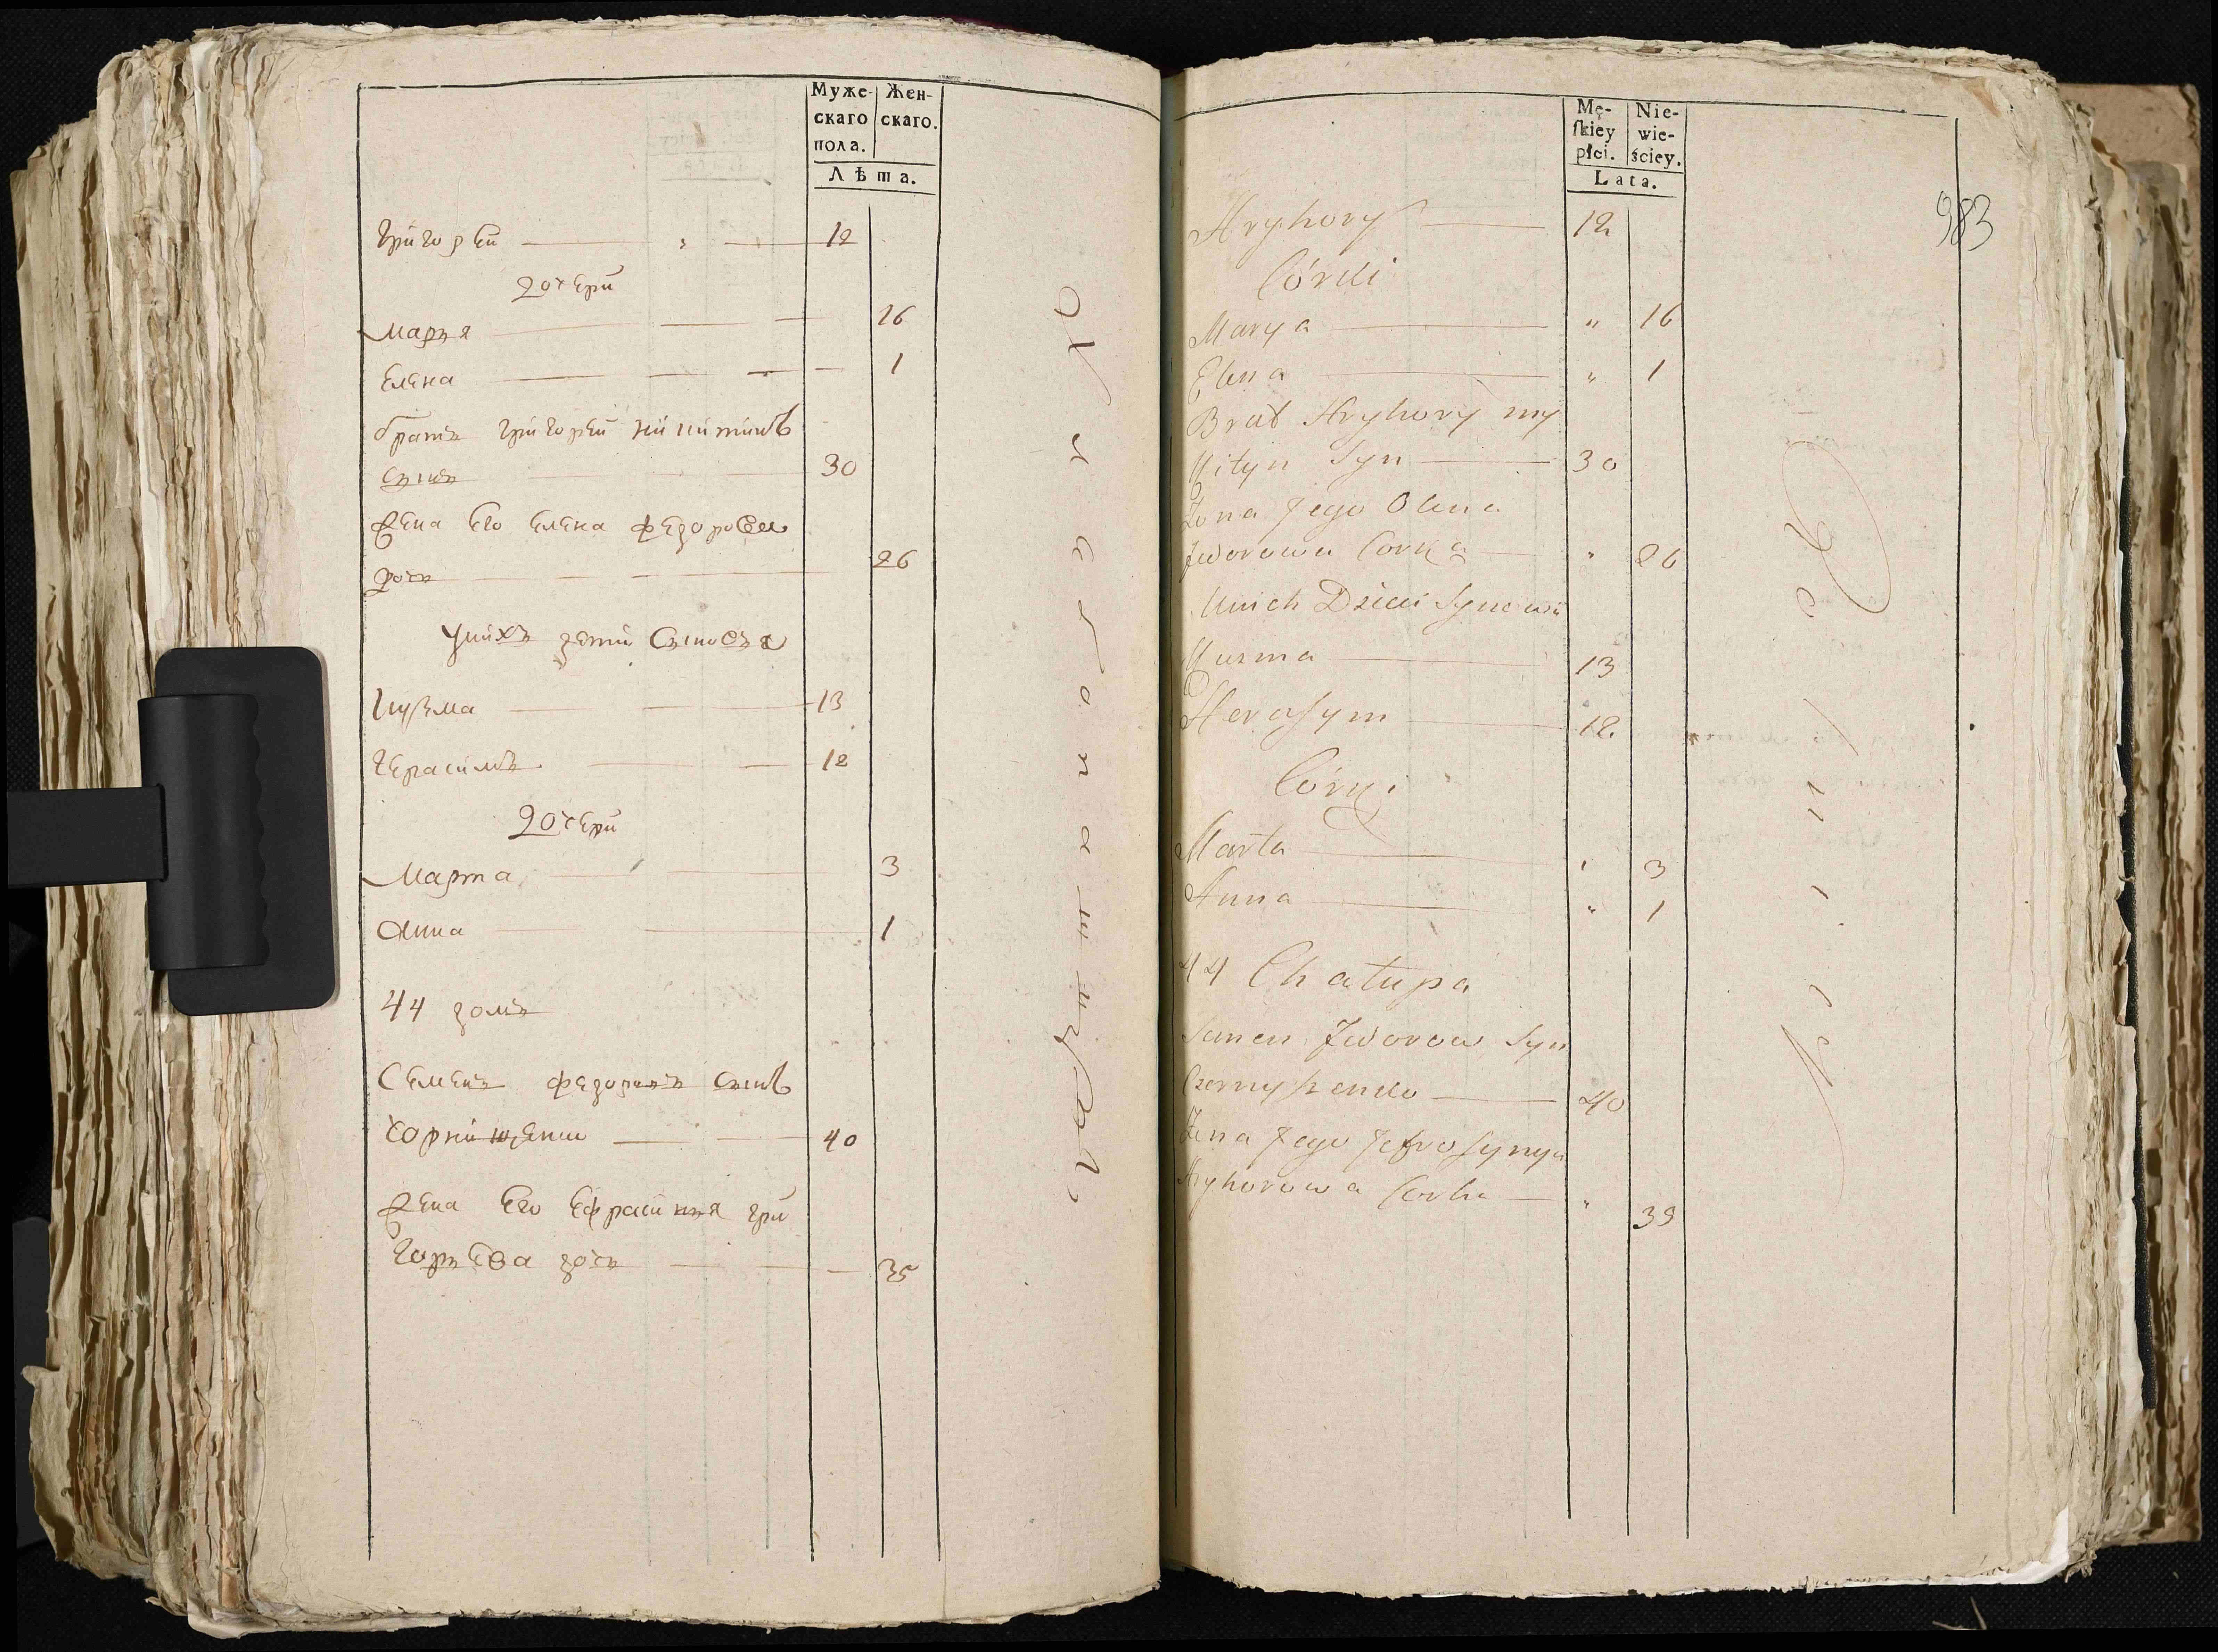 Муже-
скаго
пола.
Жен-
скаго.
Лѣта.
Григорѣй 12
дочери
Марья 16
Елена 1
братъ Григорей Никитинъ
сынъ 30
жена его Елена Федорова
дочь 26
у нихъ дети сыновья
Кузма 13
Герасимъ 12
дочери
Марта 3
Анна 1
44 домъ
Семенъ Федоровъ сынъ
40
жена его Ефросинья Гри
горьева дочь 35
Mę-
skiey
płci.
Nie-
wie-
ściey.
Lata.
983
Hryhory 12
Córki
Marya " 16
Elena " 1
Brat Hryhory my
Kityn Syn 30
Żona Jego Olena
Fedorowa Corka " 26
U nich Dzieci Synowie
Kuzma 13
Herasym 12
Córki
Marta " 3
Anna " 1
44 Chałupa
Semen Fedorow Syn
40
Żona Jego Jefrosynya
Hryhorowa Corka " 39